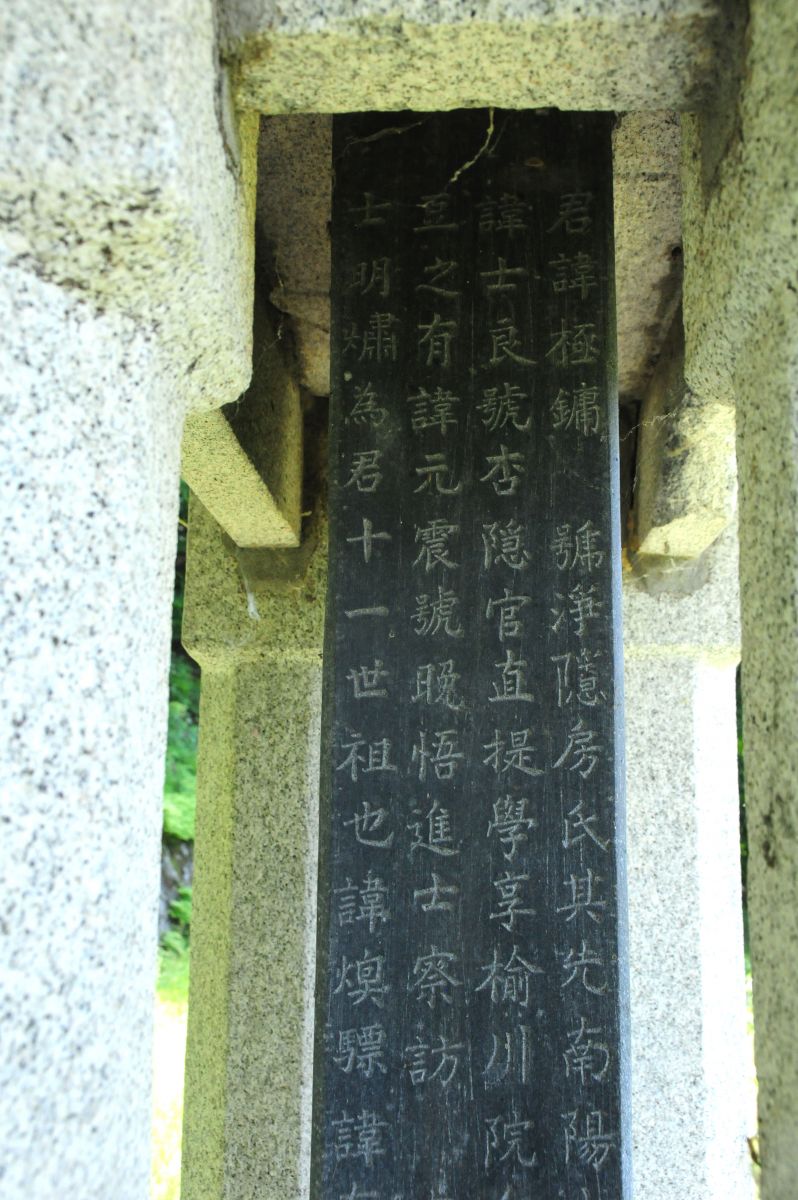 君諱極鏞 號淨隱房氏其先南陽
諱士良號杏隠官直提學享榆川院
互之有諱元震號晚悟進士察訪
士明爌為君十一世祖也諱煥驃諱